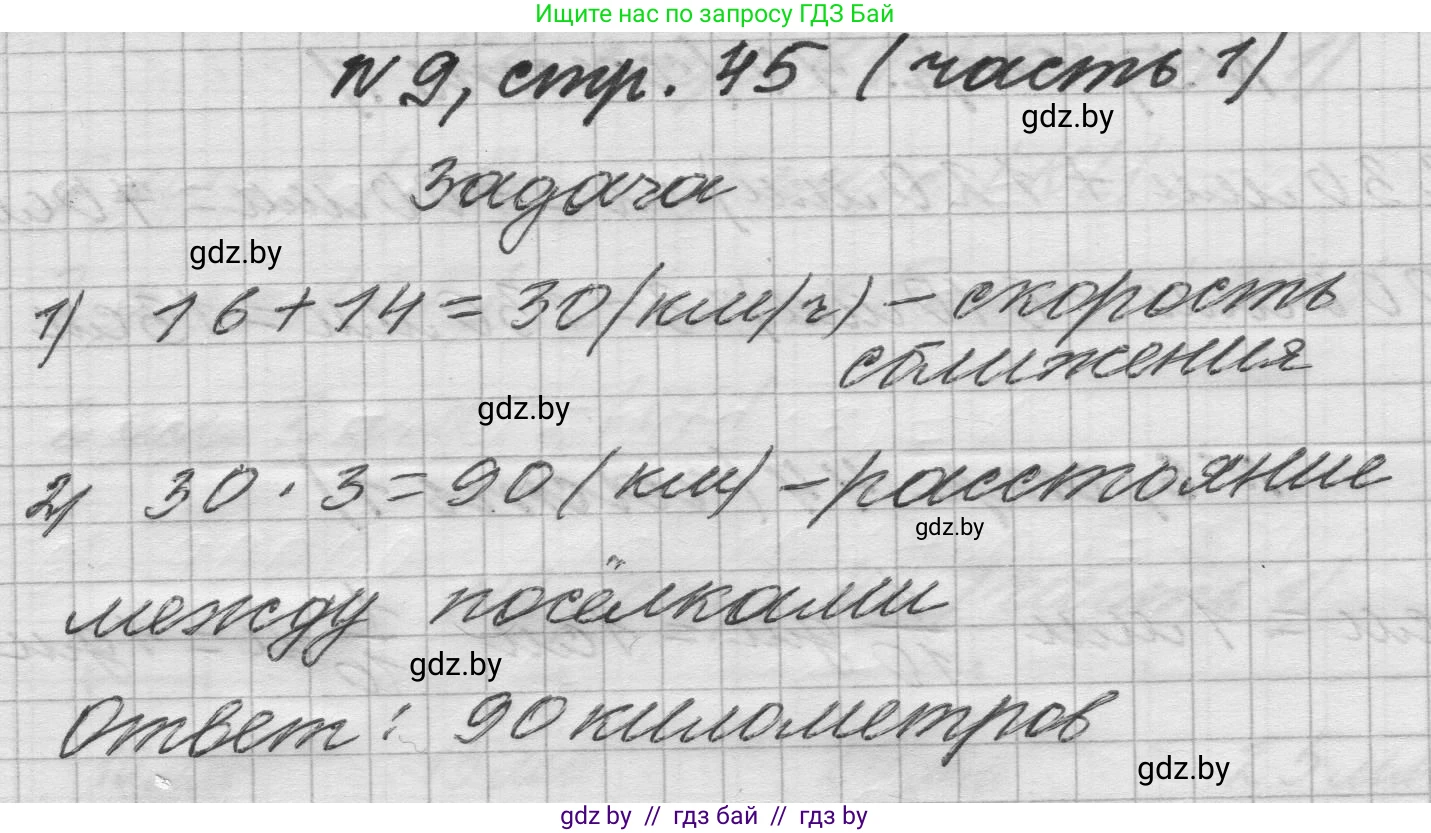 Ищите нас по запросу ГДЗ Бай
№ 9, стр. 45 (часть 1)
gdz.by
Задача
gdz.by
1) 16 + 14 = 30 (км/ч) – скорость
сближения
gdz.by
2) 30 · 3 = 90 (км) – расстояние
gdz.by
между посёлками
gdz.by
Ответ: 90 километров
gdz.by
gdz.by // гдз бай // гдз by